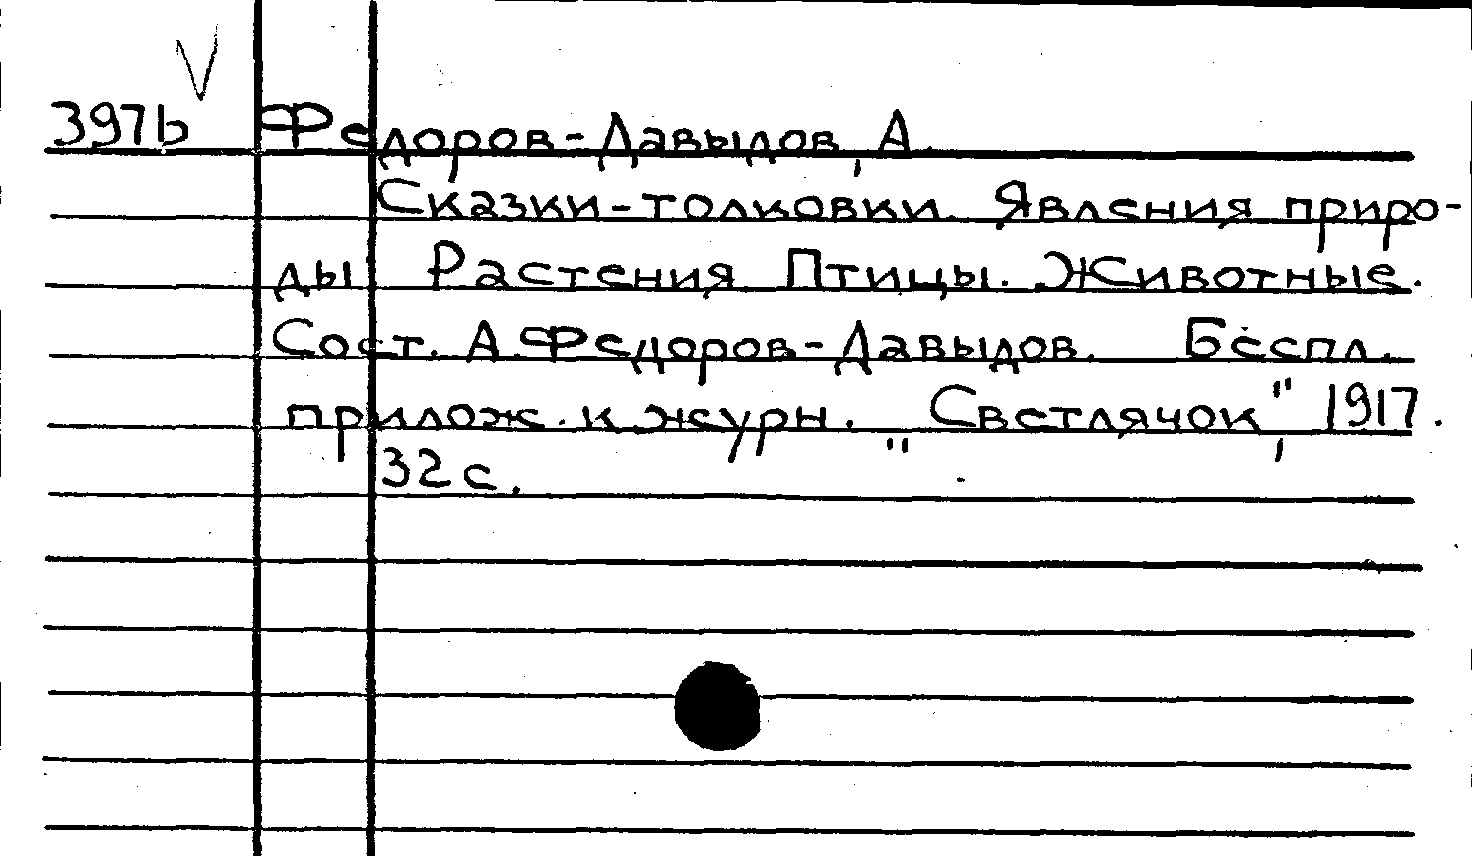 397b Федоров-Давыдов, А.
Сказки-толковки. Явления приро-
ды Растения Птицы. Животные.
Сост. А.Федоров-Давыдов. Беспл.
прилож. к журн. "Светлячок", 1917.
32 с.